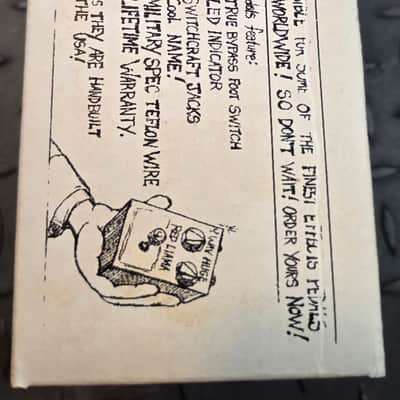 SOME OF THE FINEST EFFECTS PEDALS
WORLDWIDE! SO DON'T WAIT! ORDER YOURS NOW!
feature:
TRUE BYPASS FOOT SWITCH
LED INDICATOR
SWITCHCRAFT JACKS
COOL NAME!
MILITARY SPEC TEFLON WIRE
LIFETIME WARRANTY.
THEY ARE HANDBUILT
THE USA!
WAY HUGE
RED LLAMA